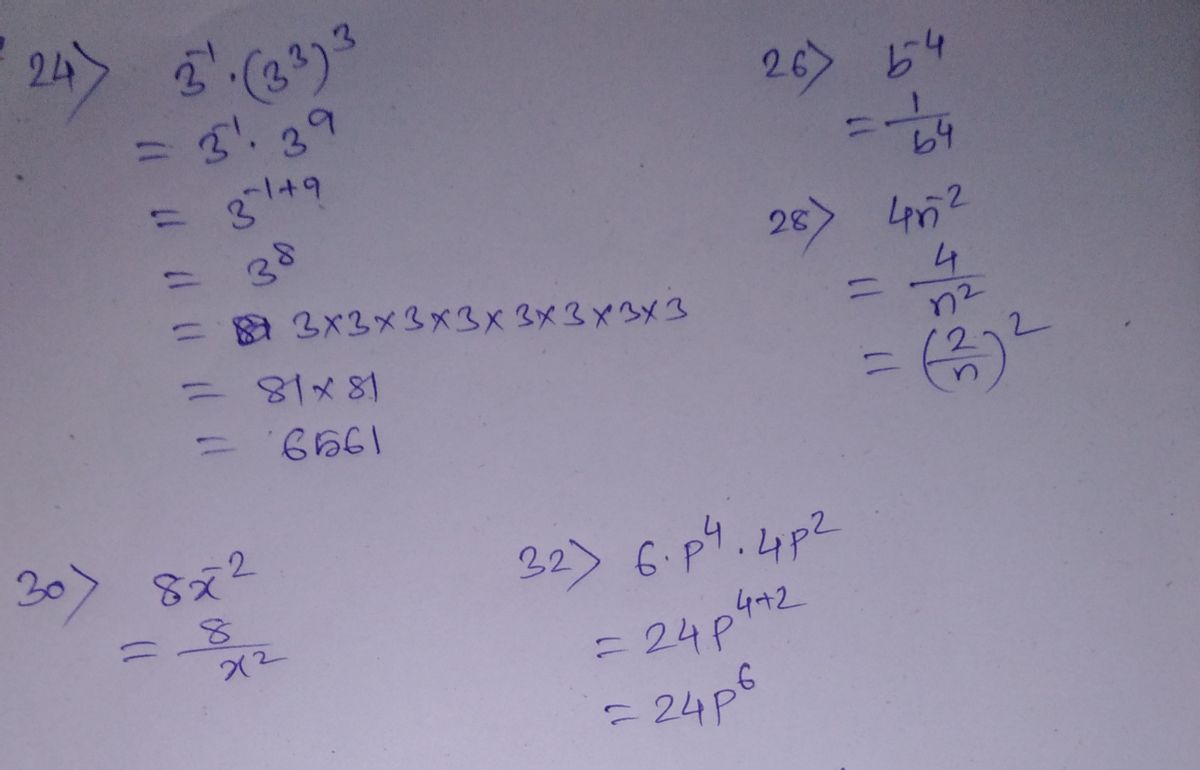 24> 3⁻¹·(3³)³
= 3⁻¹·3⁹
= 3⁻¹⁺⁹
= 3⁸
= 3×3×3×3×3×3×3×3
= 81×81
= 6561
26> b⁻⁴
= 1/b⁴
28> 4n⁻²
= 4/n²
= (2/n)²
30> 8x⁻²
= 8/x²
32> 6·p⁴·4p²
= 24p⁴⁺²
= 24p⁶